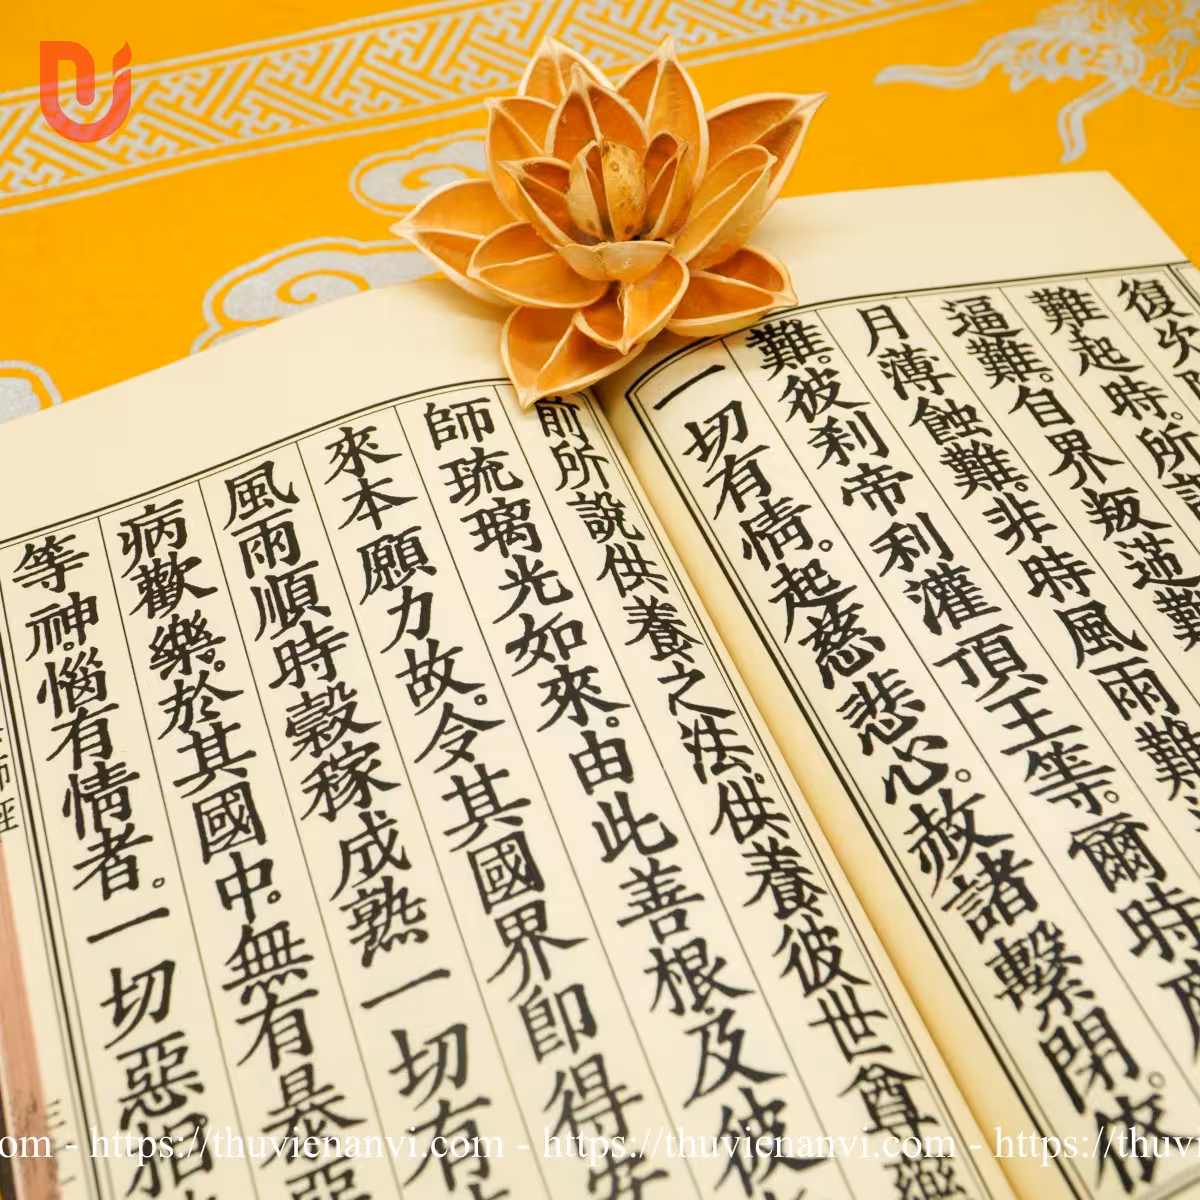 復次
難起時。所說
逼難。自界叛逆難
月薄蝕難。非時風雨難
難。彼刹帝利灌頂王等。爾時應
一切有情。起慈悲心。赦諸繫閉。依
前所說供養之法。供養彼世尊藥
師琉璃光如來。由此善根。及彼
來本願力故。令其國界即得安
風雨順時穀稼成熟一切有
病歡樂。於其國中。無有暴惡
等神。惱有情者。一切惡相
https://thuvienanvi.com - https://thuvienanvi.com